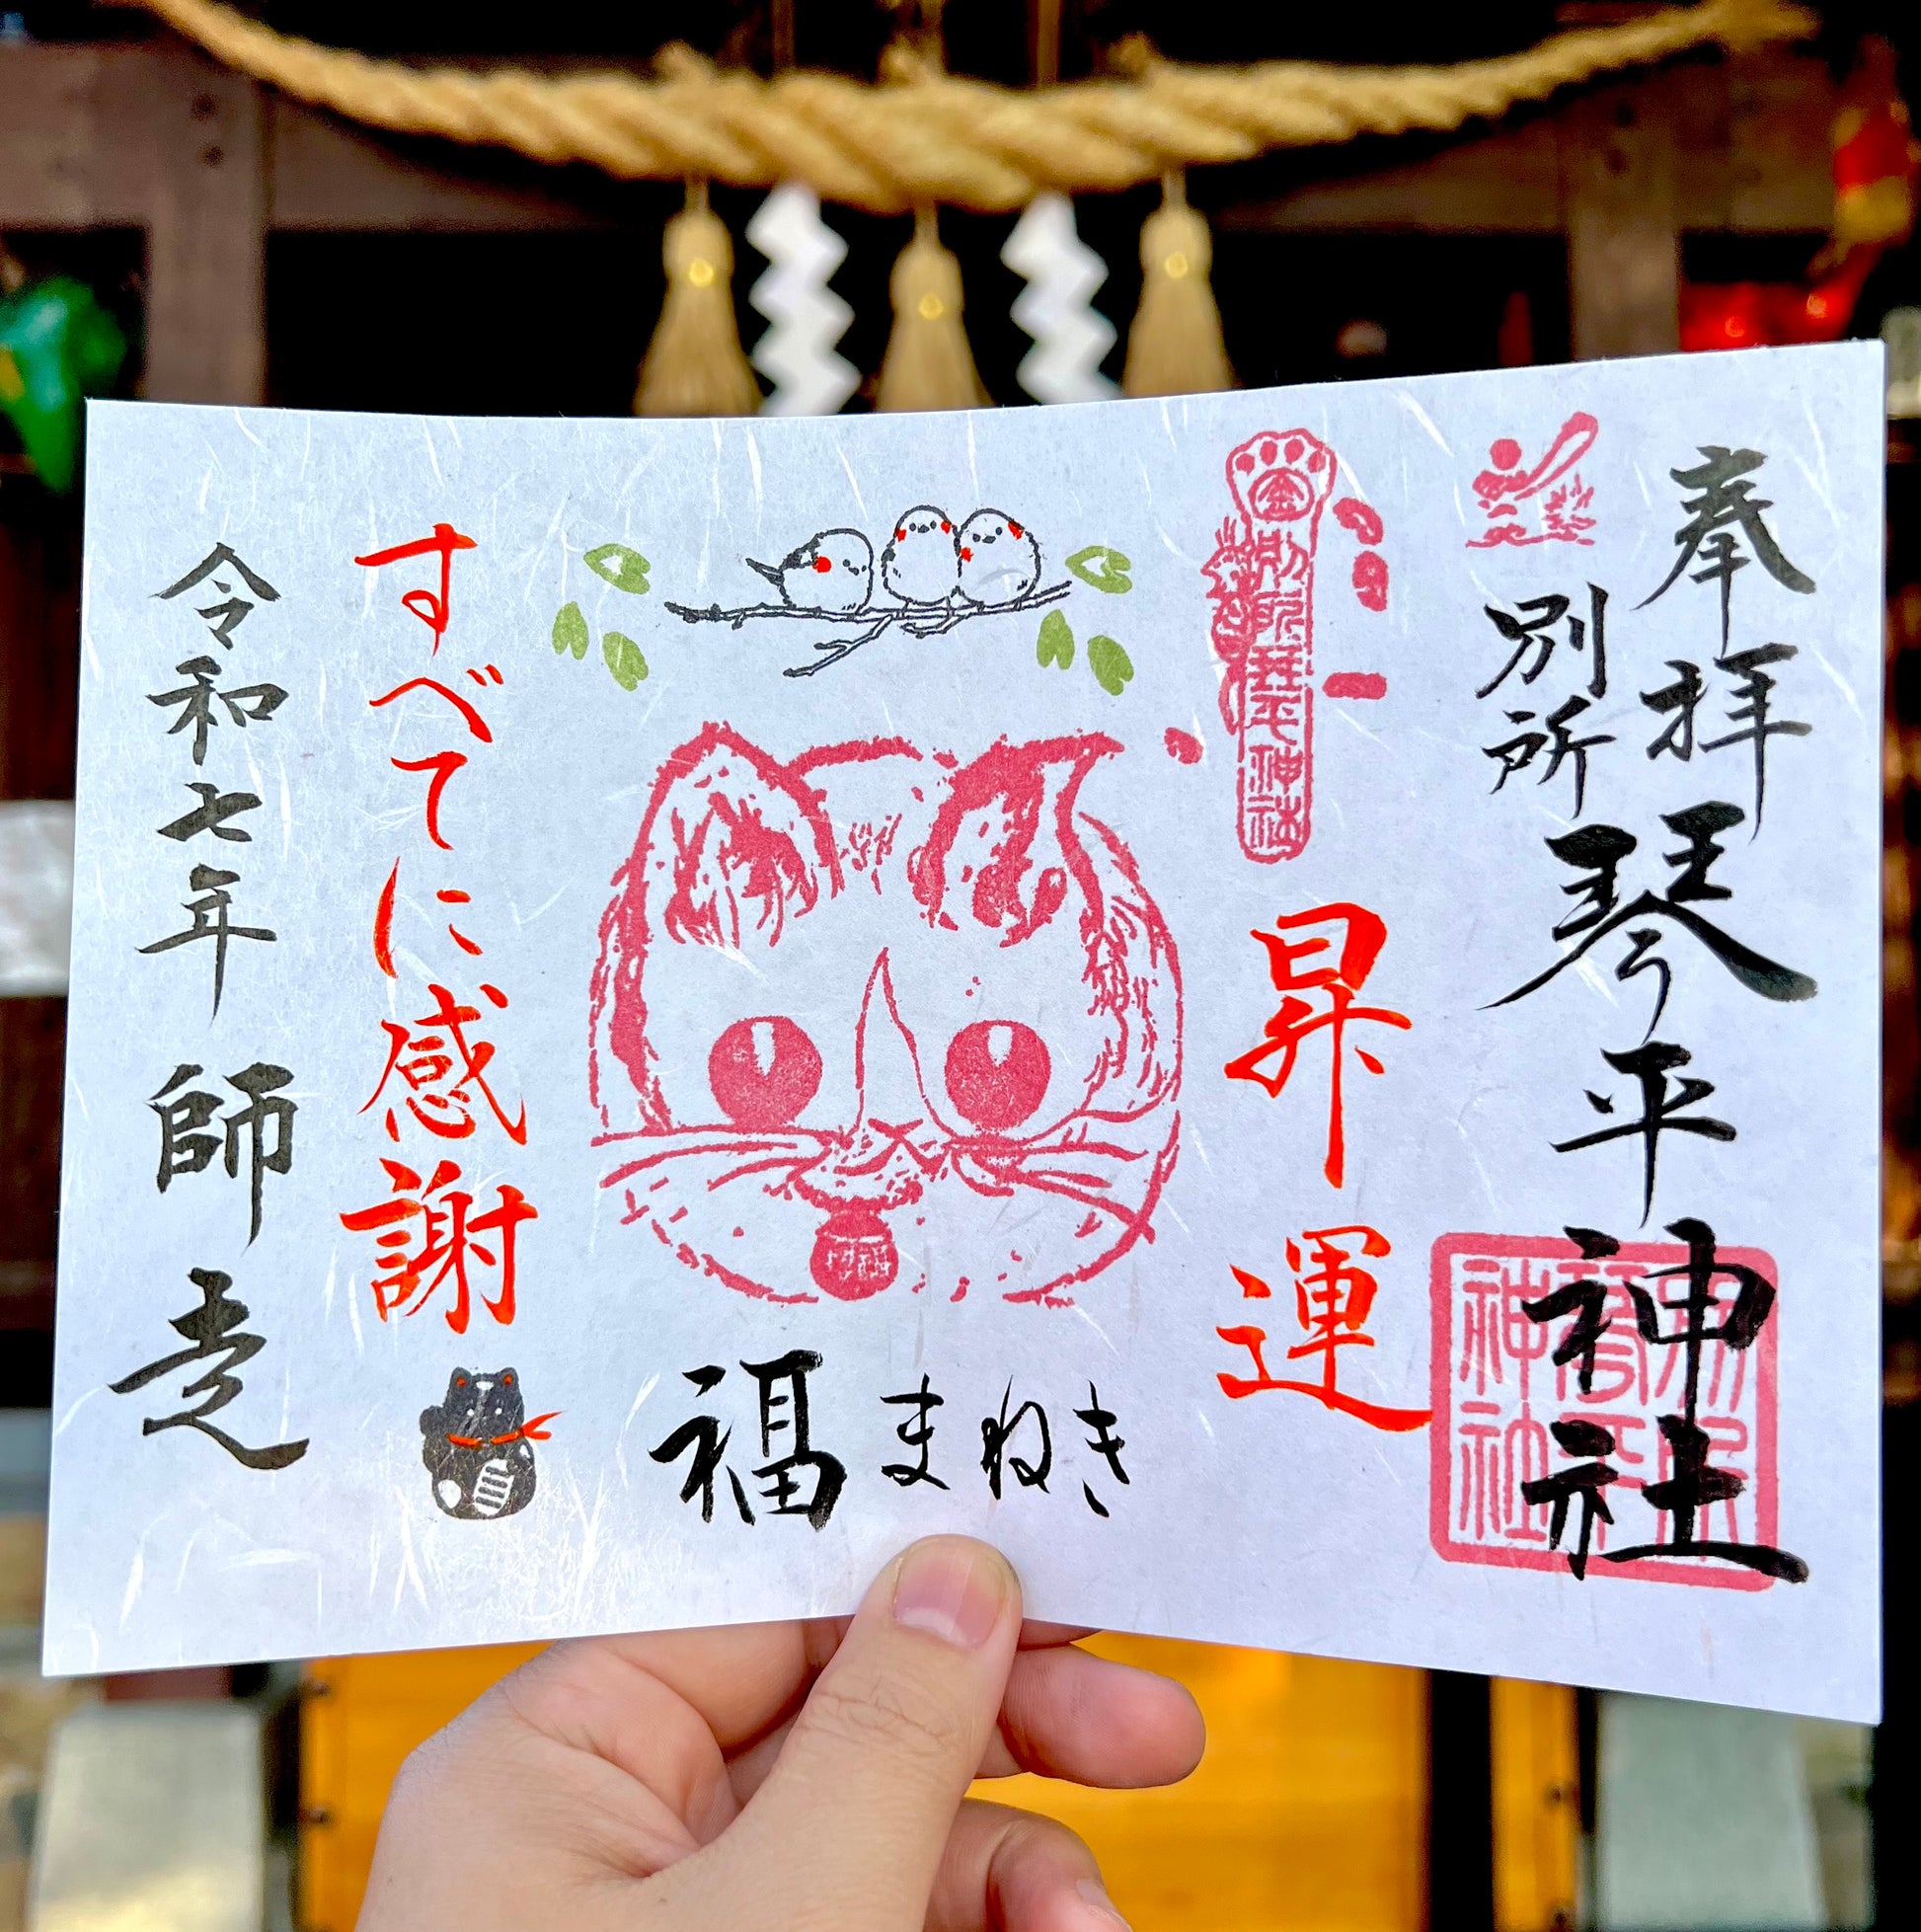 奉拝
別所
琴平神社
金
別所琴平神社
昇運
福まねき
すべてに感謝
令和七年 師走